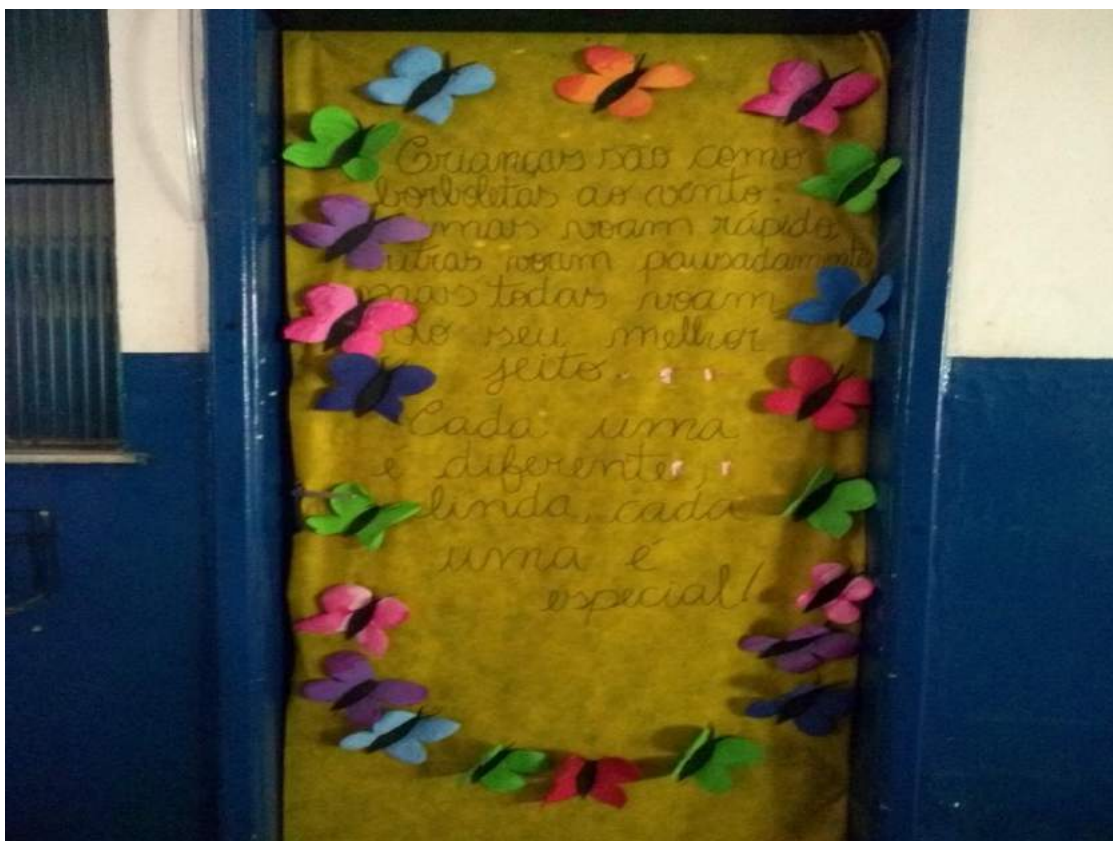 Crianças são como
borboletas ao vento:
umas voam rápido,
outras voam pausadamente
mais todas voam
do seu melhor
jeito...
Cada uma
é diferente,
linda, cada
uma é
especial!